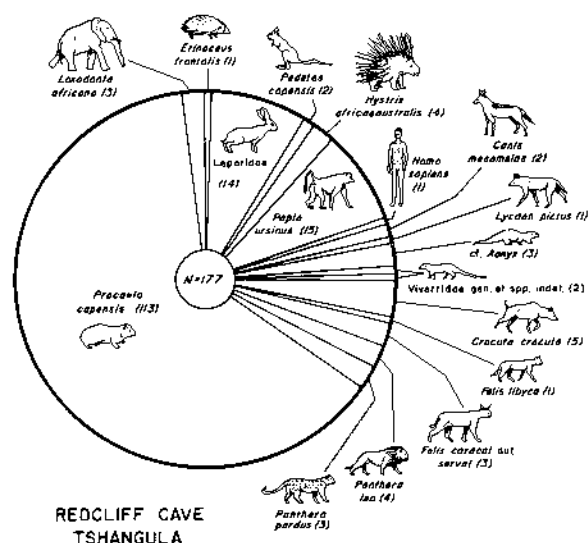 Loxodonta
africana (3)
Erinaceus
frontalis (1)
Pedetes
capensis (2)
Hystrix
africaeaustralis (4)
Leporidae
(14)
Papio
ursinus (15)
Homo
sapiens
(1)
Canis
mesomelas
(2)
Lycaon pictus (1)
cf. Aonyx (3)
Viverridae gen. et spp. indet. (2)
Crocuta crocuta (5)
Felis libyca (1)
Felis caracal aut
serval (3)
Panthera
leo (4)
Panthera
pardus (3)
Procavia
capensis (113)
N=177
REDCLIFF CAVE
TSHANGULA